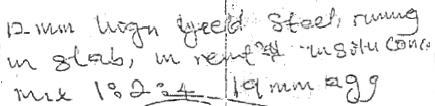 12 mm high yeeld Steel, runing
in slab, in reinfd insitu conc.
mix 1:2:4 19 mm agg